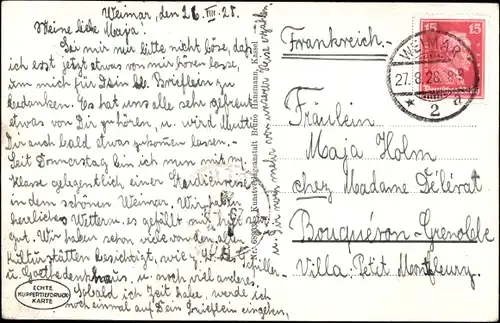 Weimar, den 26. VIII. 28.
Meine liebe Maja!
Sei mir nur bitte nicht böse, daß
ich erst jetzt etwas von mir hören lasse,
um mich für Dein lb. Brieflein zu
bedanken. Es hat uns alle sehr gefreut
etwas von Dir zu hören, u. wird Mutti
Dir auch bald etwas zukommen lassen.-
Seit Donnerstag bin ich nun mit m.
Klasse gelegentlich einer Studienreise
in dem schönen Weimar. Wir haben
herrliches Wetter u. es gefällt mir hier sehr
gut. Wir haben schon viele von den alten
Kulturstätten besichtigt, wie z.B. Schiller-
u. Goethedenkhaus, u. noch viel anderes.
Sobald ich Zeit habe, werde ich
noch einmal auf Dein Brieflein eingehen,
u. Dir noch mehr von unserer Reise erzählen.
ECHTE
KUPFERTIEFDRUCK
KARTE
Kunstverlagsanstalt Bruno Hansmann, Kassel
Frankreich.-
15 15
WEIMAR
27.8.28. 8-9
* 2 d
Fräulein
Maja Holm
chez Madame Télérat
Bouquéron-Grenoble
Villa: Petit Montfleury.